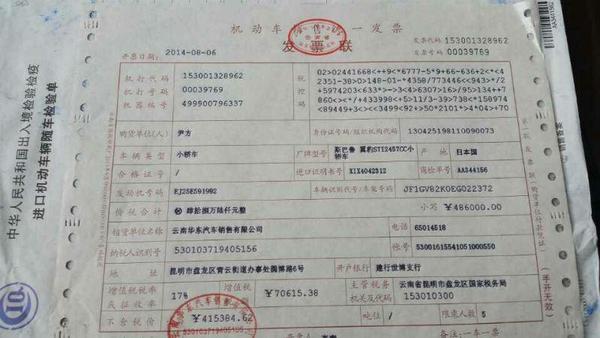 机动车销售统一发票
发票联
发票代码 153001328962
发票号码 00039769
开票日期 2014-08-06
机打代码 153001328962
机打号码 00039769
机器编号 499900796337
税控码
购货单位(人) 尹方 身份证号码/组织机构代码 130425198110090073
车辆类型 小轿车 厂牌型号 斯巴鲁 翼豹STI2457CC小轿车 产地 日本国
合格证号 / 进口证明书号 XIX4042312 商检单号 AA344156
发动机号码 EJ25E591992 车辆识别代号/车架号码 JF1GV82K0EG022372
价税合计 ⊗肆拾捌万陆仟元整 小写 ¥486000.00
销货单位名称 云南华东汽车销售有限公司 电话 65014518
纳税人识别号 530103719405156 账号 53001615541051000550
地址 昆明市盘龙区青云街道办事处园博路6号 开户银行 建行世博支行
增值税税率或征收率 17% 增值税税额 ¥70615.38 主管税务机关及代码 云南省昆明市盘龙区国家税务局 153010300
不含税价 ¥415384.62 吨位 / 限乘人数 5
备注:一车一票
第一联 发票联(购货单位付款凭证)
(手开无效)
中华人民共和国出入境检验检疫
进口机动车辆随车检验单
AA344156